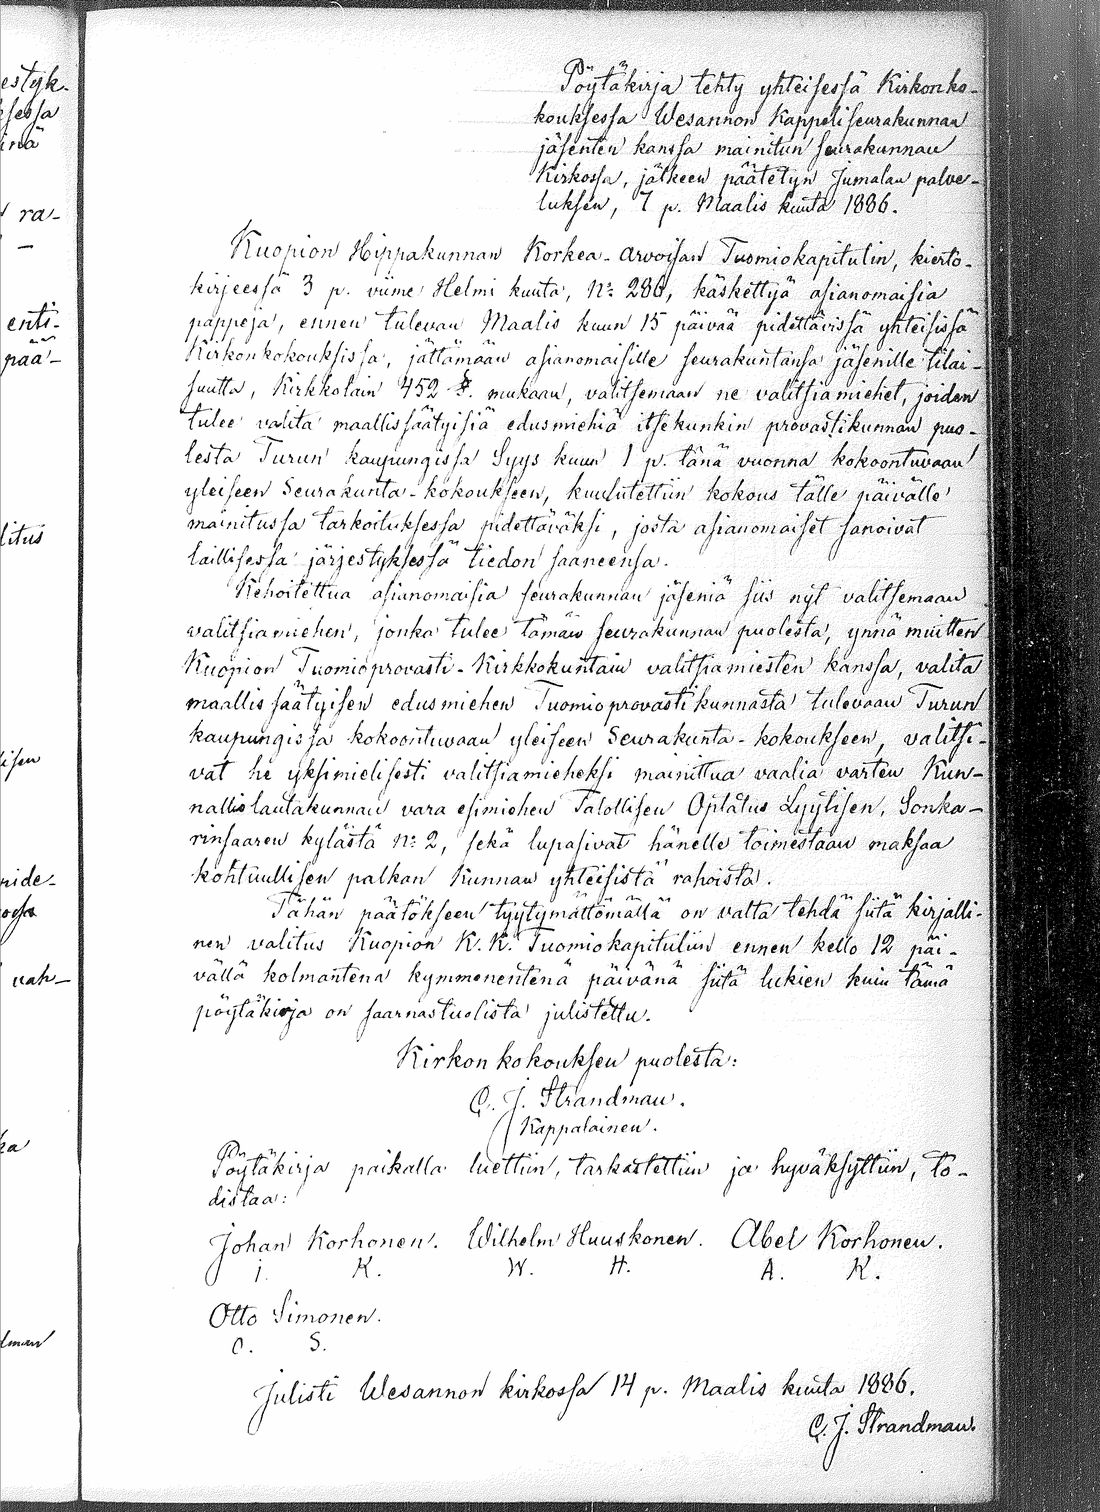 estyk-
ksessa
inä
ra-
enti-
pää-
litus
lisen
nide-
vah-
ka
dman
Pöytäkirja tehty yhteisessä Kirkonko-
kouksessa Wesannon Kappeliseurakunnan
jäsenten kanssa mainitun seurakunnan
Kirkossa, jälkeen päätetyn Jumalan palve-
luksen, 7 p. Maalis kuuta 1886.
Kuopion Hippakunnan Korkea-arvoisan Tuomiokapitulin, kierto-
kirjeessä 3 p. viime Helmi kuuta, No 286, käskettyä asianomaisia
pappeja, ennen tulevan Maalis kuun 15 päivää pidettävissä yhteisissä
Kirkonkokouksissa, jättämään asianomaisille seurakuntansa jäsenille tilai-
suutta, Kirkkolain 452 §. mukaan, valitsemaan ne valitsiamiehet, joiden
tulee valita maallissäätyisiä edusmiehiä itsekunkin provastikunnan puo-
lesta Turun kaupungissa Syys kuun 1 p. tänä vuonna kokoontuvaan
yleiseen Seurakunta-kokoukseen, kuulutettiin kokous tälle päivälle
mainitussa tarkoituksessa pidettäväksi, josta asianomaiset sanoivat
laillisessa järjestyksessä tiedon saaneensa.
Kehoitettua asianomaisia seurakunnan jäseniä siis nyt valitsemaan
valitsiamiehen, jonka tulee tämän seurakunnan puolesta, ynnä muitten
Kuopion Tuomioprovasti-Kirkkokuntain valitsiamiesten kanssa, valita
maallissäätyisen edusmiehen Tuomioprovastikunnasta tulevaan Turun
kaupungissa kokoontuvaan yleiseen Seurakunta-kokoukseen, valitsi-
vat he yksimielisesti valitsiamieheksi mainittua vaalia varten Kun-
nallislautakunnan vara esimiehen Talollisen Optatus Lyytisen, Sonka-
rinsaaren kylästä No 2, sekä lupasivat hänelle toimestaan maksaa
kohtuullisen palkan Kunnan yhteisistä rahoista.
Tähän päätökseen tyytymättömällä on valta tehdä siitä kirjalli-
nen valitus Kuopion K.K. Tuomiokapituliin ennen kello 12 päi-
vällä kolmantena kymmenentenä päivänä siitä lukien kuin tämä
pöytäkirja on saarnastuolista julistettu.
Kirkonkokouksen puolesta:
C. J. Strandman.
Kappalainen.
Pöytäkirja paikalla luettiin, tarkastettiin ja hyväksyttiin, to-
distaa:
Johan Korhonen. Wilhelm Huuskonen. Abel Korhonen.
J. K. W. H. A. K.
Otto Simonen.
O. S.
Julisti Wesannon kirkossa 14 p. Maalis kuuta 1886.
C. J. Strandman.